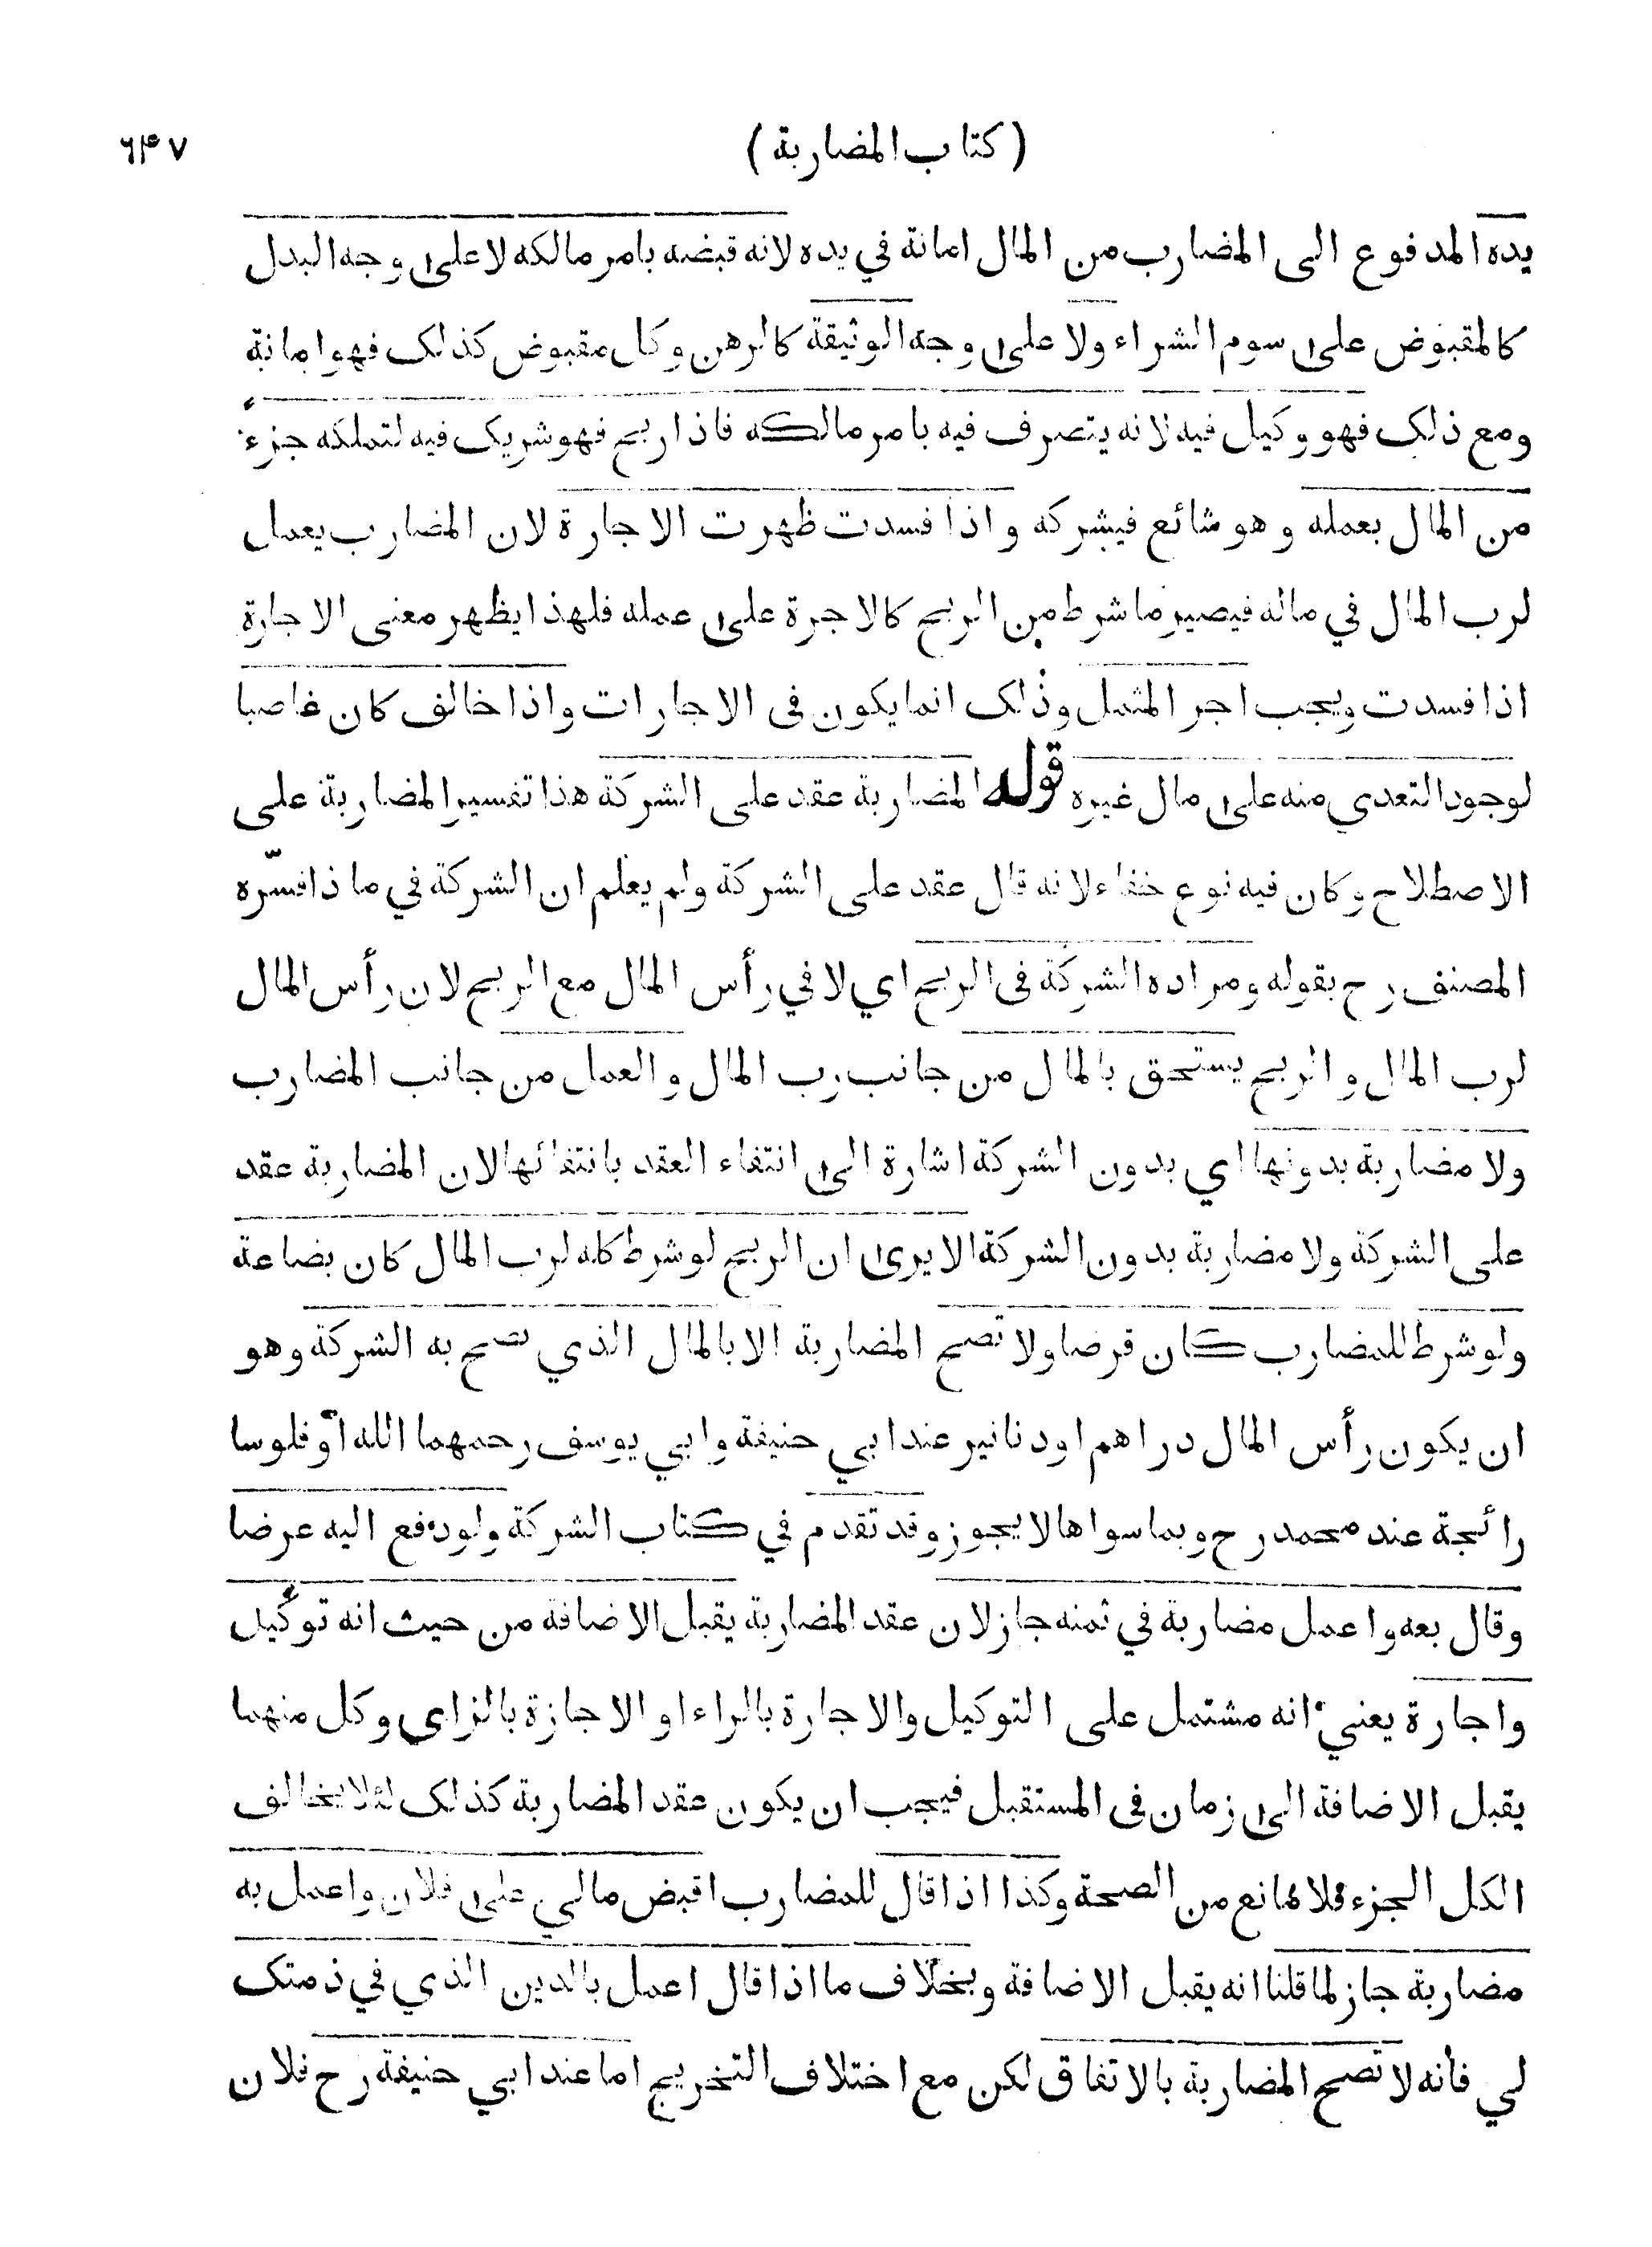 ( كتاب المضاربة )
٦٤٧
يده المدفوع الى المضارب من المال امانة في يده لانه قبضه بامر مالكه لا على وجه البدل
كالمقبوض على سوم الشراء ولا على وجه الوثيقة كالرهن وكل مقبوض كذلك فهو امانة
ومع ذلك فهو وكيل فيه لانه يتصرف فيه بامر مالكه فاذا ربح فهو شريك فيه لتملكه جزءً
من المال بعمله وهو شائع فيشركه واذا فسدت ظهرت الاجارة لان المضارب يعمل
لرب المال في ماله فيصير ما شرط من الربح كالاجرة على عمله فلهذا يظهر معنى الاجارة
اذا فسدت ويجب اجر المثل وذلك انما يكون فى الاجارات واذا خالف كان غاصبا
لوجود التعدي منه على مال غيره قوله المضاربة عقد على الشركة هذا تفسير المضاربة على
الاصطلاح وكان فيه نوع خفاء لانه قال عقد على الشركة ولم يعلم ان الشركة في ماذا فسّره
المصنف رح بقوله ومراده الشركة فى الربح اي لا في رأس المال مع الربح لان رأس المال
لرب المال والربح يستحق بالمال من جانب رب المال والعمل من جانب المضارب
ولا مضاربة بدونها اي بدون الشركة اشارة الى انتفاء العقد بانتفائها لان المضاربة عقد
على الشركة ولا مضاربة بدون الشركة الا يرى ان الربح لو شرط كله لرب المال كان بضاعة
ولو شرط للمضارب كان قرضا ولا تصح المضاربة الا بالمال الذي تصح به الشركة وهو
ان يكون رأس المال دراهم او دنانير عند ابي حنيفة وابي يوسف رحمهما الله او فلوسا
رائجة عند محمد رح وبما سواها لا يجوز وقد تقدم في كتاب الشركة ولو دفع اليه عرضا
وقال بعه واعمل مضاربة في ثمنه جاز لان عقد المضاربة يقبل الاضافة من حيث انه توكيل
واجارة يعني انه مشتمل على التوكيل والاجارة بالراء او الاجازة بالزاي وكل منهما
يقبل الاضافة الى زمان فى المستقبل فيجب ان يكون عقد المضاربة كذلك لئلا يخالف
الكل الجزء فلا مانع من الصحة وكذا اذا قال للمضارب اقبض مالي على فلان واعمل به
مضاربة جاز لما قلنا انه يقبل الاضافة وبخلاف ما اذا قال اعمل بالدين الذي في ذمتك
لي فانه لا تصح المضاربة بالاتفاق لكن مع اختلاف التخريج اما عند ابي حنيفة رح فلان